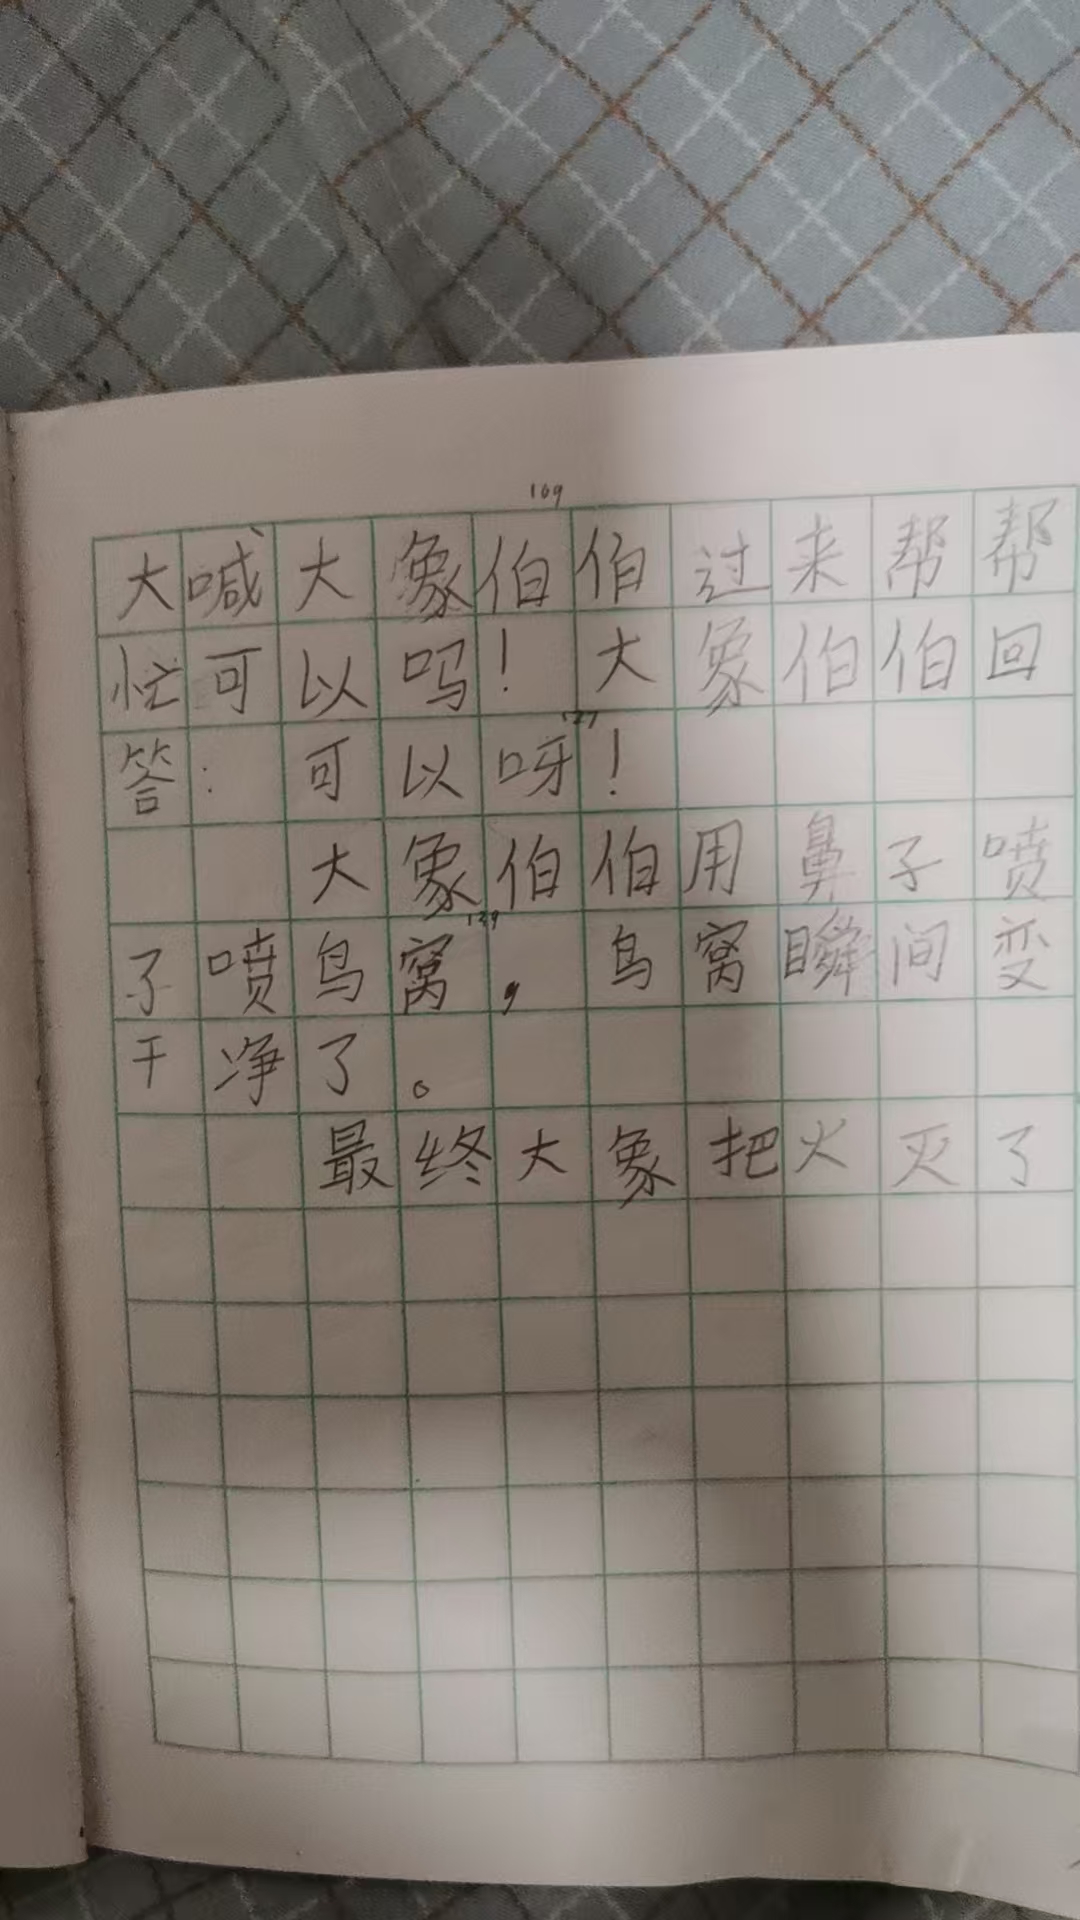 109
大喊大象伯伯过来帮帮
忙可以吗！大象伯伯回
127
答：可以呀！
大象伯伯用鼻子喷
129
了喷鸟窝，鸟窝瞬间变
干净了。
最终大象把火灭了